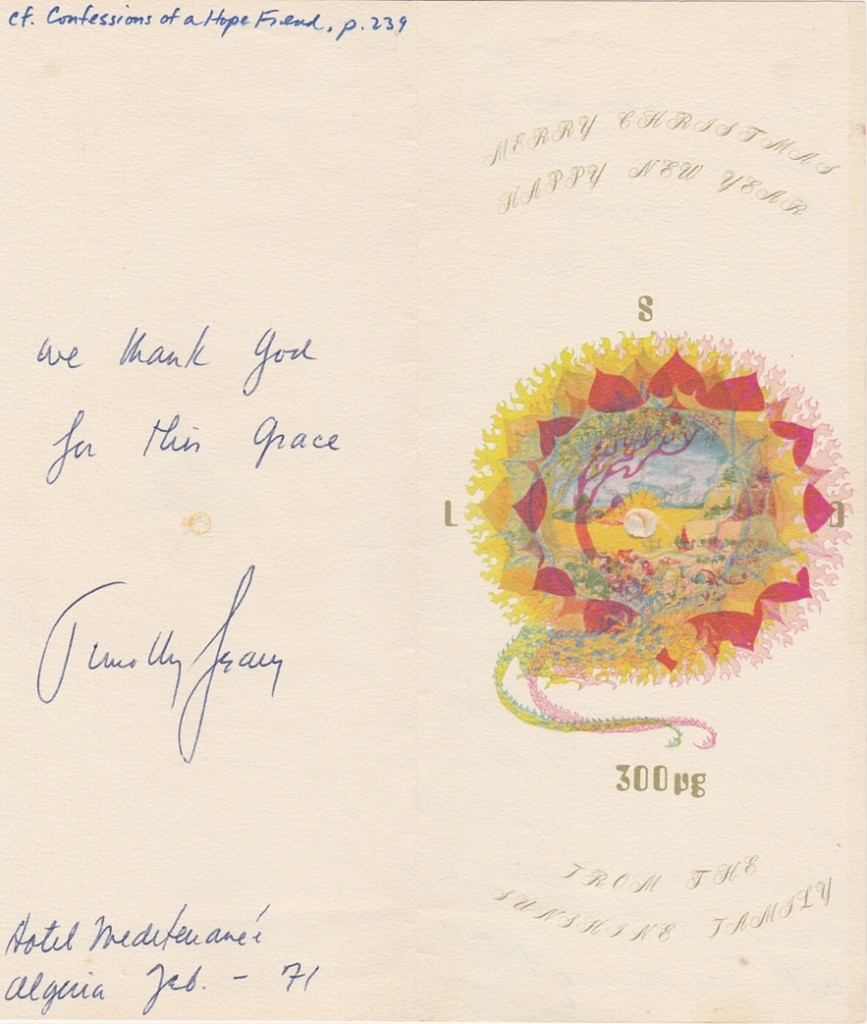 cf. Confessions of a Hope Fiend, p. 239
we thank God
for this Grace
Timothy Leary
Hotel Mediteraneé
Algeria Feb. - 71
MERRY CHRISTMAS
HAPPY NEW YEAR
S
L D
300 µg
FROM THE
SUNSHINE FAMILY